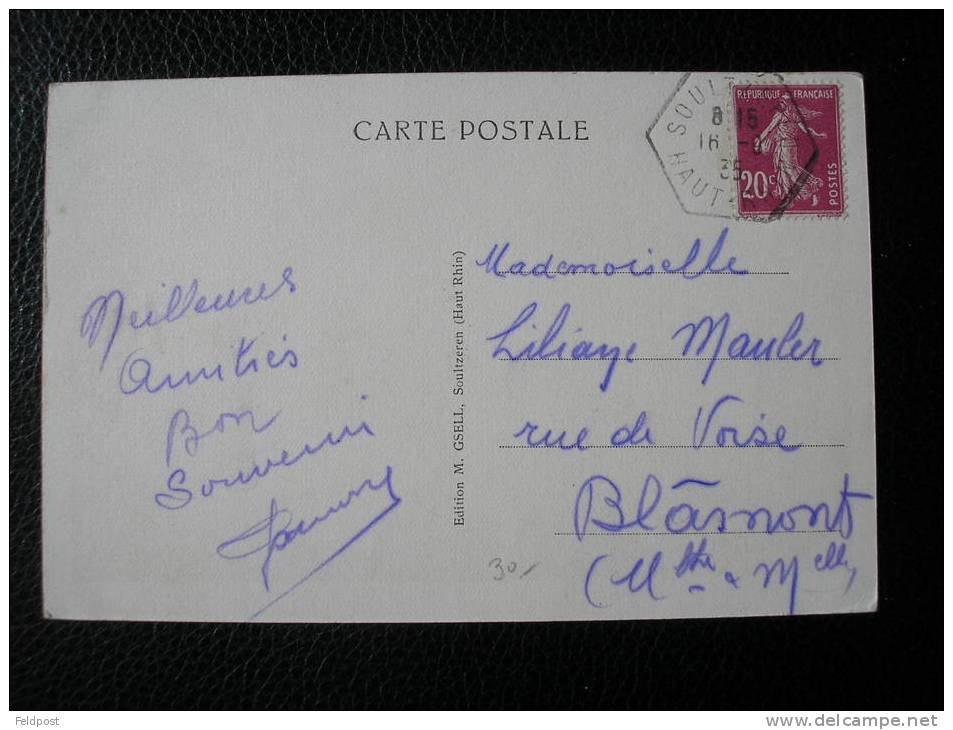 CARTE POSTALE
SOULTZ
8 15
16
35
HAUT
REPUBLIQUE FRANÇAISE
20c
POSTES
Meilleures
Amitiés
Bon
Souvenir
Edition M. GSELL, Soultzeren (Haut Rhin)
Mademoiselle
Liliane Mauler
rue de Voise
Blâmont
(Mthe & Melle)
30,-
Feldpost
www.delcampe.net